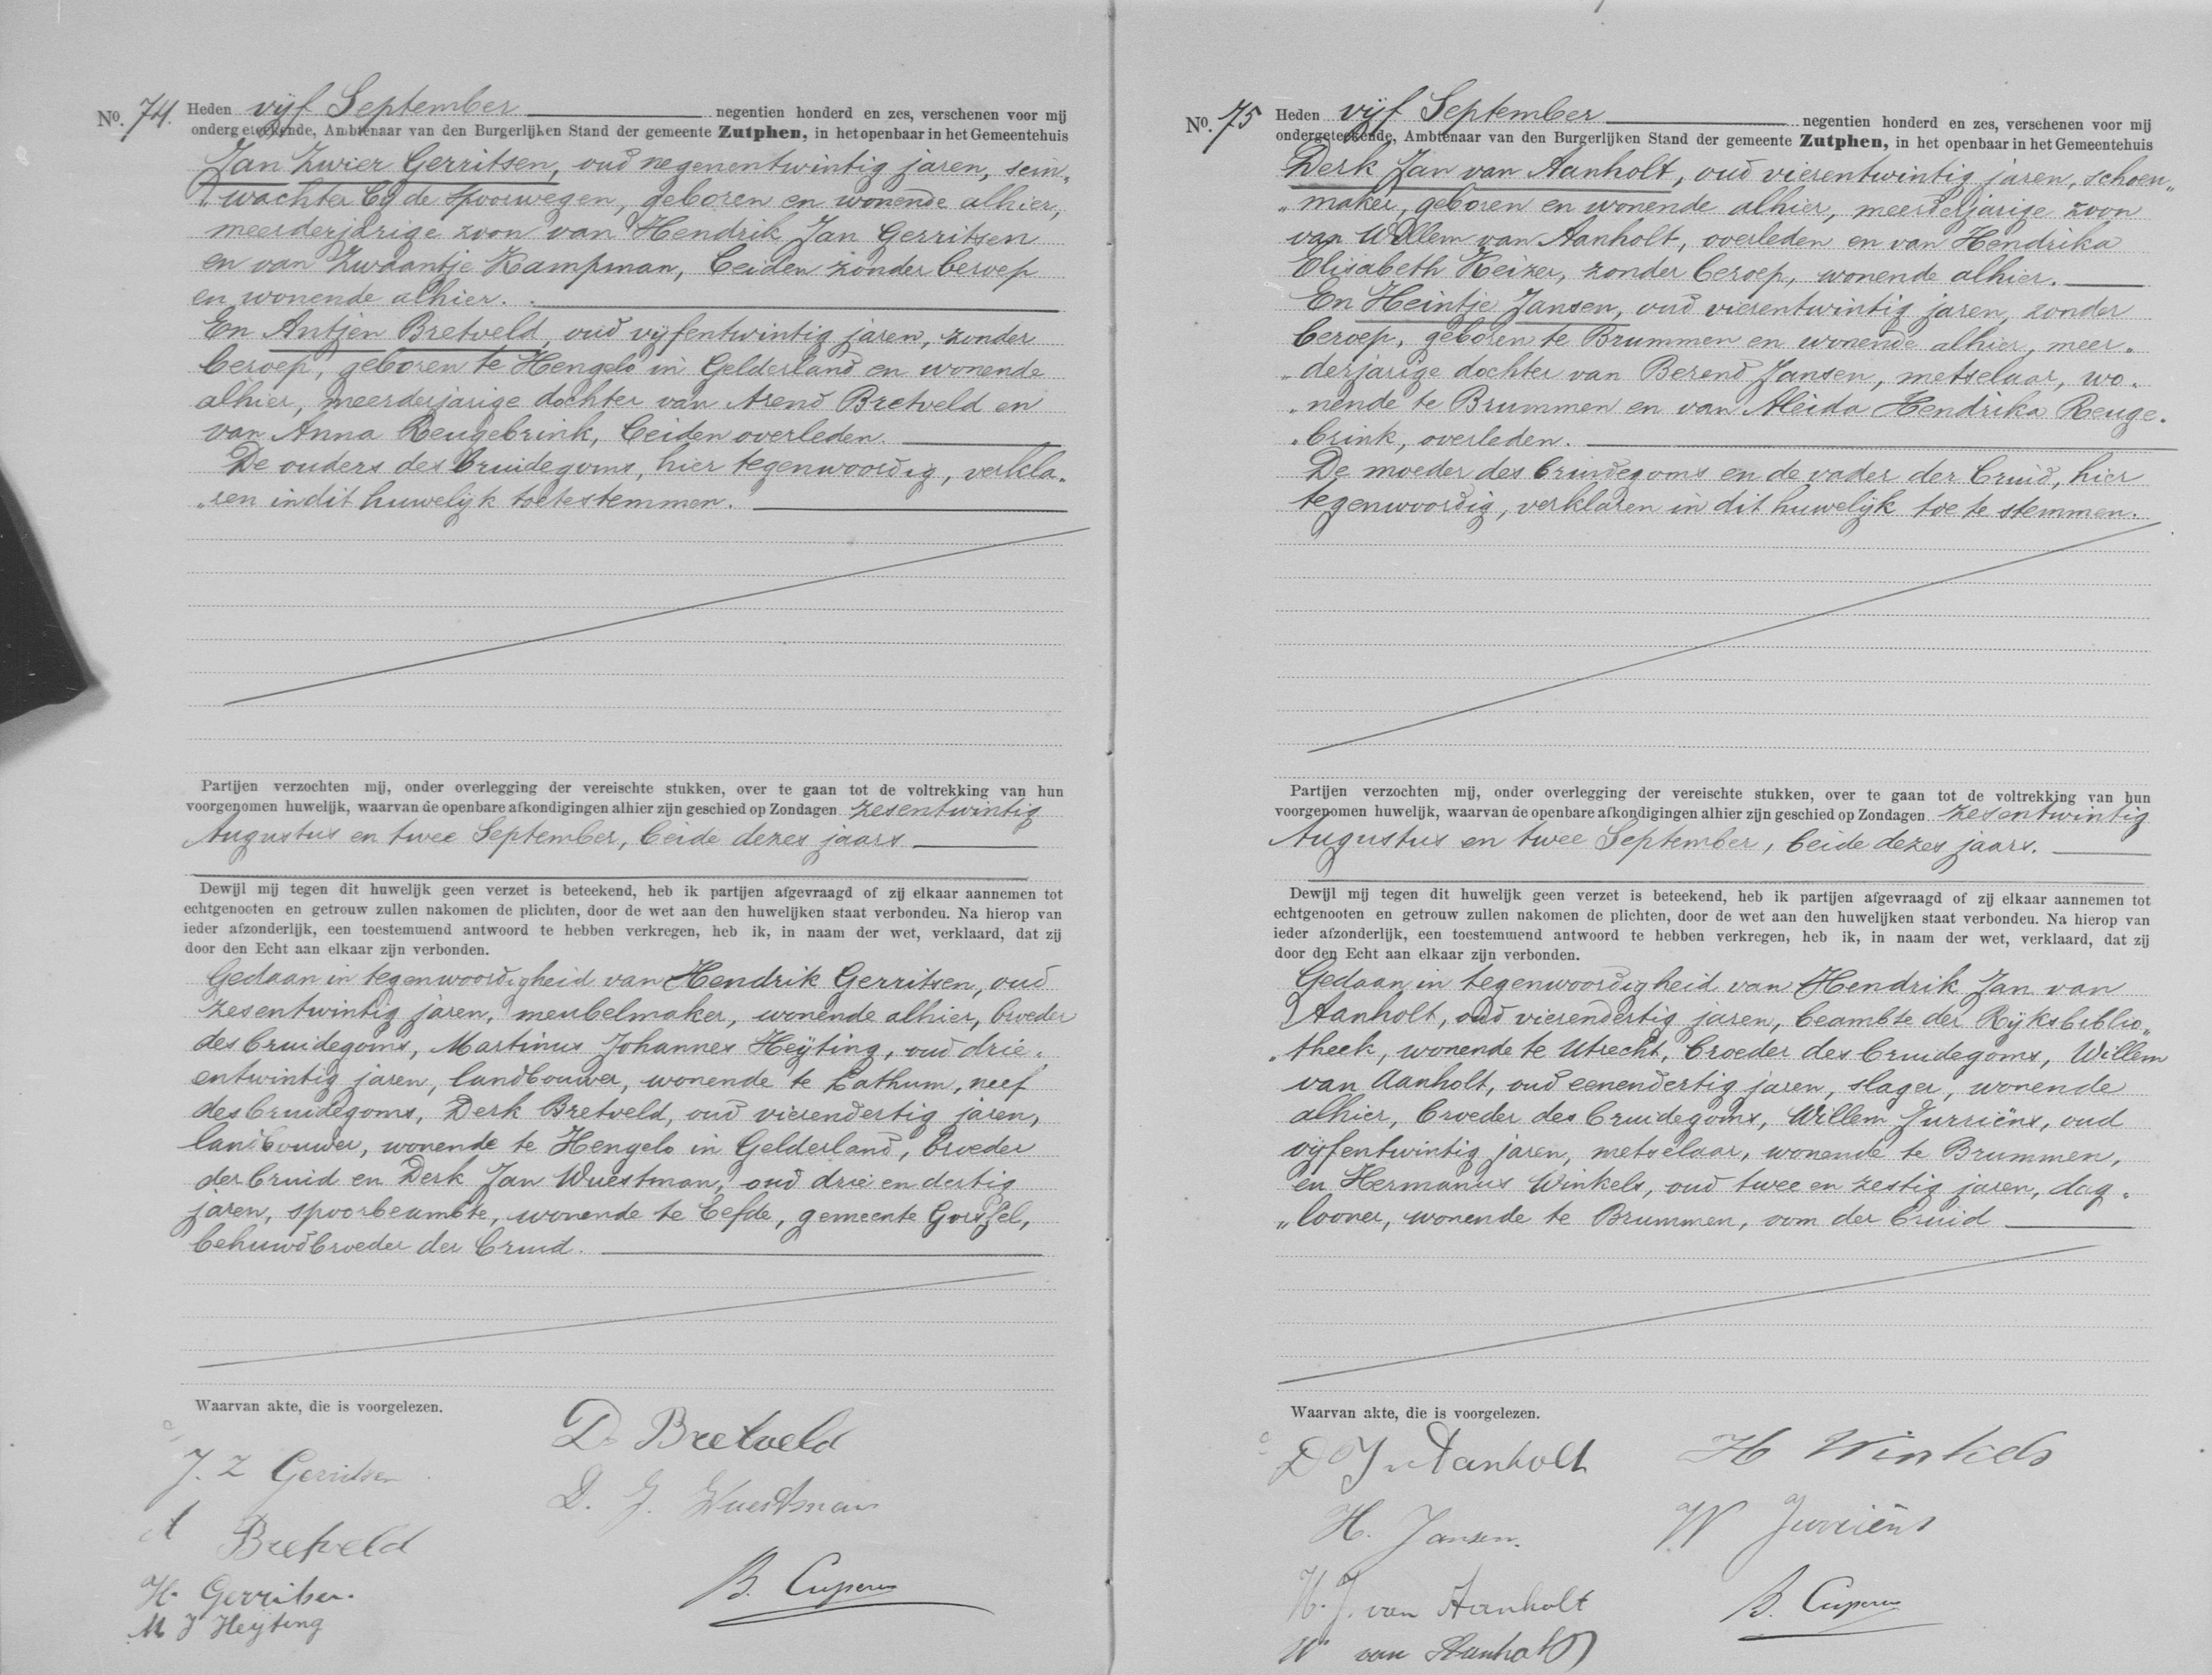 No. 74. Heden vijf September negentien honderd en zes, verschenen voor mij
ondergeteekende, Ambtenaar van den Burgerlijken Stand der gemeente Zutphen, in het openbaar in het Gemeentehuis
Jan Zwier Gerritsen, oud negenentwintig jaren, sein„
„wachter bij de spoorwegen, geboren en wonende alhier,
meerderjarige zoon van Hendrik Jan Gerritsen
en van Zwaantje Kampman, beiden zonder beroep
en wonende alhier.
En Antjen Bretveld, oud vijfentwintig jaren, zonder
beroep, geboren te Hengelo in Gelderland en wonende
alhier, meerderjarige dochter van Arend Bretveld en
van Anna Reugebrink, beiden overleden.
De ouders des bruidegoms, hier tegenwoordig, verkla„
„ren in dit huwelijk toetestemmen.
Partijen verzochten mij, onder overlegging der vereischte stukken, over te gaan tot de voltrekking van hun
voorgenomen huwelijk, waarvan de openbare afkondigingen alhier zijn geschied op Zondagen zesentwintig
Augustus en twee September, beide dezes jaars
Dewijl mij tegen dit huwelijk geen verzet is beteekend, heb ik partijen afgevraagd of zij elkaar aannemen tot
echtgenooten en getrouw zullen nakomen de plichten, door de wet aan den huwelijken staat verbonden. Na hierop van
ieder afzonderlijk, een toestemmend antwoord te hebben verkregen, heb ik, in naam der wet, verklaard, dat zij
door den Echt aan elkaar zijn verbonden.
Gedaan in tegenwoordigheid van Hendrik Gerritsen, oud
zesentwintig jaren, meubelmaker, wonende alhier, broeder
des bruidegoms, Martinus Johannes Heijting, oud drie„
entwintig jaren, landbouwer, wonende te Lathum, neef
des bruidegoms, Derk Bretveld, oud vierendertig jaren,
landbouwer, wonende te Hengelo in Gelderland, broeder
der bruid en Derk Jan Wuestman, oud drie en dertig
jaren, spoorbeambte, wonende te Eefde, gemeente Gorssel,
behuwdbroeder der bruid.
Waarvan akte, die is voorgelezen.
J. Z Gerritsen
A Bretveld
H. Gerritsen.
M J Heijting
D Bretveld
D. J. Wuestman
B. Cuperus
No. 75 Heden vijf September negentien honderd en zes, verschenen voor mij
ondergeteekende, Ambtenaar van den Burgerlijken Stand der gemeente Zutphen, in het openbaar in het Gemeentehuis
Derk Jan van Aanholt, oud vierentwintig jaren, schoen„
„maker, geboren en wonende alhier, meerderjarige zoon
van Willem van Aanholt, overleden en van Hendrika
Elisabeth Keizer, zonder beroep, wonende alhier.
En Heintje Jansen, oud vierentwintig jaren, zonder
beroep, geboren te Brummen en wonende alhier, meer„
„derjarige dochter van Berend Jansen, metselaar, wo„
„nende te Brummen en van Aleida Hendrika Reuge„
„brink, overleden.
De moeder des bruidegoms en de vader der bruid, hier
tegenwoordig, verklaren in dit huwelijk toe te stemmen.
Partijen verzochten mij, onder overlegging der vereischte stukken, over te gaan tot de voltrekking van hun
voorgenomen huwelijk, waarvan de openbare afkondigingen alhier zijn geschied op Zondagen zesentwintig
Augustus en twee September, beide dezes jaars.
Dewijl mij tegen dit huwelijk geen verzet is beteekend, heb ik partijen afgevraagd of zij elkaar aannemen tot
echtgenooten en getrouw zullen nakomen de plichten, door de wet aan den huwelijken staat verbonden. Na hierop van
ieder afzonderlijk, een toestemmend antwoord te hebben verkregen, heb ik, in naam der wet, verklaard, dat zij
door den Echt aan elkaar zijn verbonden.
Gedaan in tegenwoordigheid van Hendrik Jan van
Aanholt, oud vierendertig jaren, beambte der Rijksbiblio„
„theek, wonende te Utrecht, broeder des bruidegoms, Willem
van Aanholt, oud eenendertig jaren, slager, wonende
alhier, broeder des bruidegoms, Willem Jurriëns, oud
vijfentwintig jaren, metselaar, wonende te Brummen,
en Hermanus Winkels, oud twee en zestig jaren, dag„
„looner, wonende te Brummen, oom der bruid
Waarvan akte, die is voorgelezen.
D J v Aanholt
H. Jansen.
H. J. van Aanholt
W van Aanholt
H Winkels
W Jurriëns
B. Cuperus